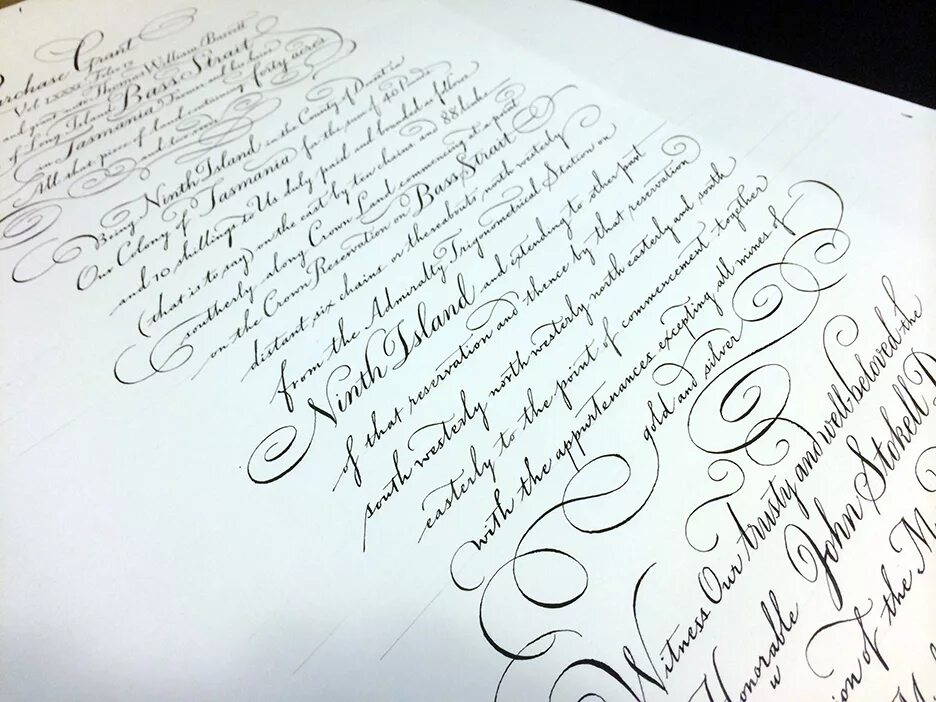 Purchase Grant
Vol LXXXX Folio 12
and grant unto Thomas William Barrett
of Long Island Bass Strait
in Tasmania Farmer and his heirs
All that piece of land containing forty acres
and two roods
Being Ninth Island in the County of Dorset in
Our Colony of Tasmania for the sum of 40 Pounds
and 10 shillings to Us duly paid and bounded as follows
(that is to say) on the east by ten chains and 88 links
southerly along Crown Land commencing at a point
on the Crown Reservation on Bass Strait
distant six chains or thereabouts north westerly
from the Admiralty Trigonometrical Station on
Ninth Island and extending to other point
of that reservation and thence by that reservation
south westerly north westerly north easterly and south
easterly to the point of commencement together
with the appurtenances excepting all mines of
gold and silver
Witness Our trusty and well-beloved the
Honorable John Stokell
of the